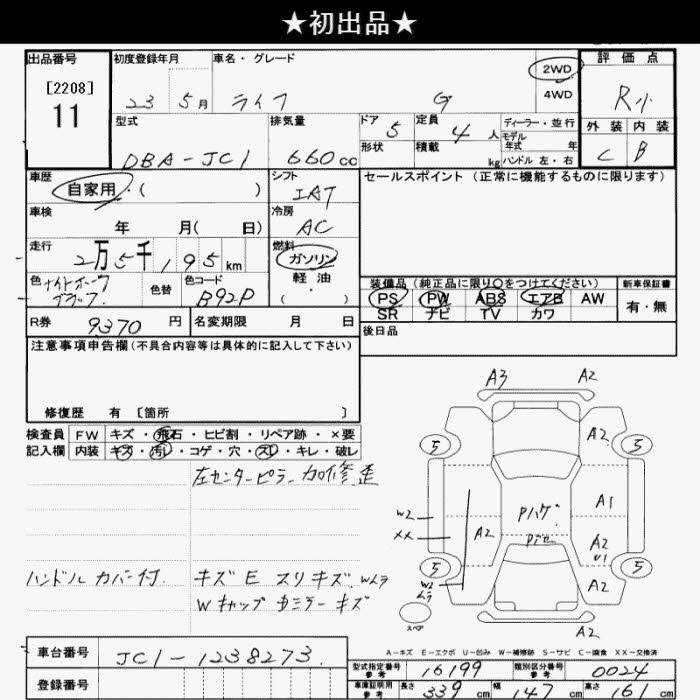 ★初出品★
出品番号 初度登録年月 車名・グレード 2WD 評価点
[2208] 23 5月 ライフ G 4WD R小
11
型式 排気量 ドア 5 定員 4人 ディーラー・並行 外装 内装
DBA-JC1 660cc 形状 積載 kg モデル年式 年 C B
ハンドル 左・右
車歴 シフト セールスポイント (正常に機能するものに限ります)
自家用・( ) IAT
車検 冷房
年 月( 日) AC
走行 燃料
2万5千195km ガソリン
色 ナイトホーク 色替 色コード 軽油 装備品 (純正品に限り○をつけてください) 新車保証書
ブラックP B92P (・) PS PW ABS エアB AW 有・無
R券 9370円 名変期限 月 日 SR ナビ TV カワ
注意事項申告欄(不具合内容等は具体的に記入して下さい) 後日品
修復歴 有 [箇所 ]
検査員 FW キズ・飛石・ヒビ割・リペア跡・×要
記入欄 内装 キズ・汚レ・コゲ・穴・スレ・キレ・破レ
左センターピラー加修歪
ハンドルカバー付. キズ E スリキズ. Wムラ
Wキャップ ミラー キズ
A3 A2
5 A2 5
A1
W2 Pハゲ
XX A2 A2
U1
5 W2 ムラ A2 5
スペア A2
A-キズ E-エクボ U-凹み W-補修跡 S-サビ C-腐食 XX-交換済
車台番号 JC1-1238273 型式指定番号 参考 16199 類別区分番号 参考 0024
登録番号 車庫証明用 参考 長さ 339cm 幅 147cm 高さ 161cm